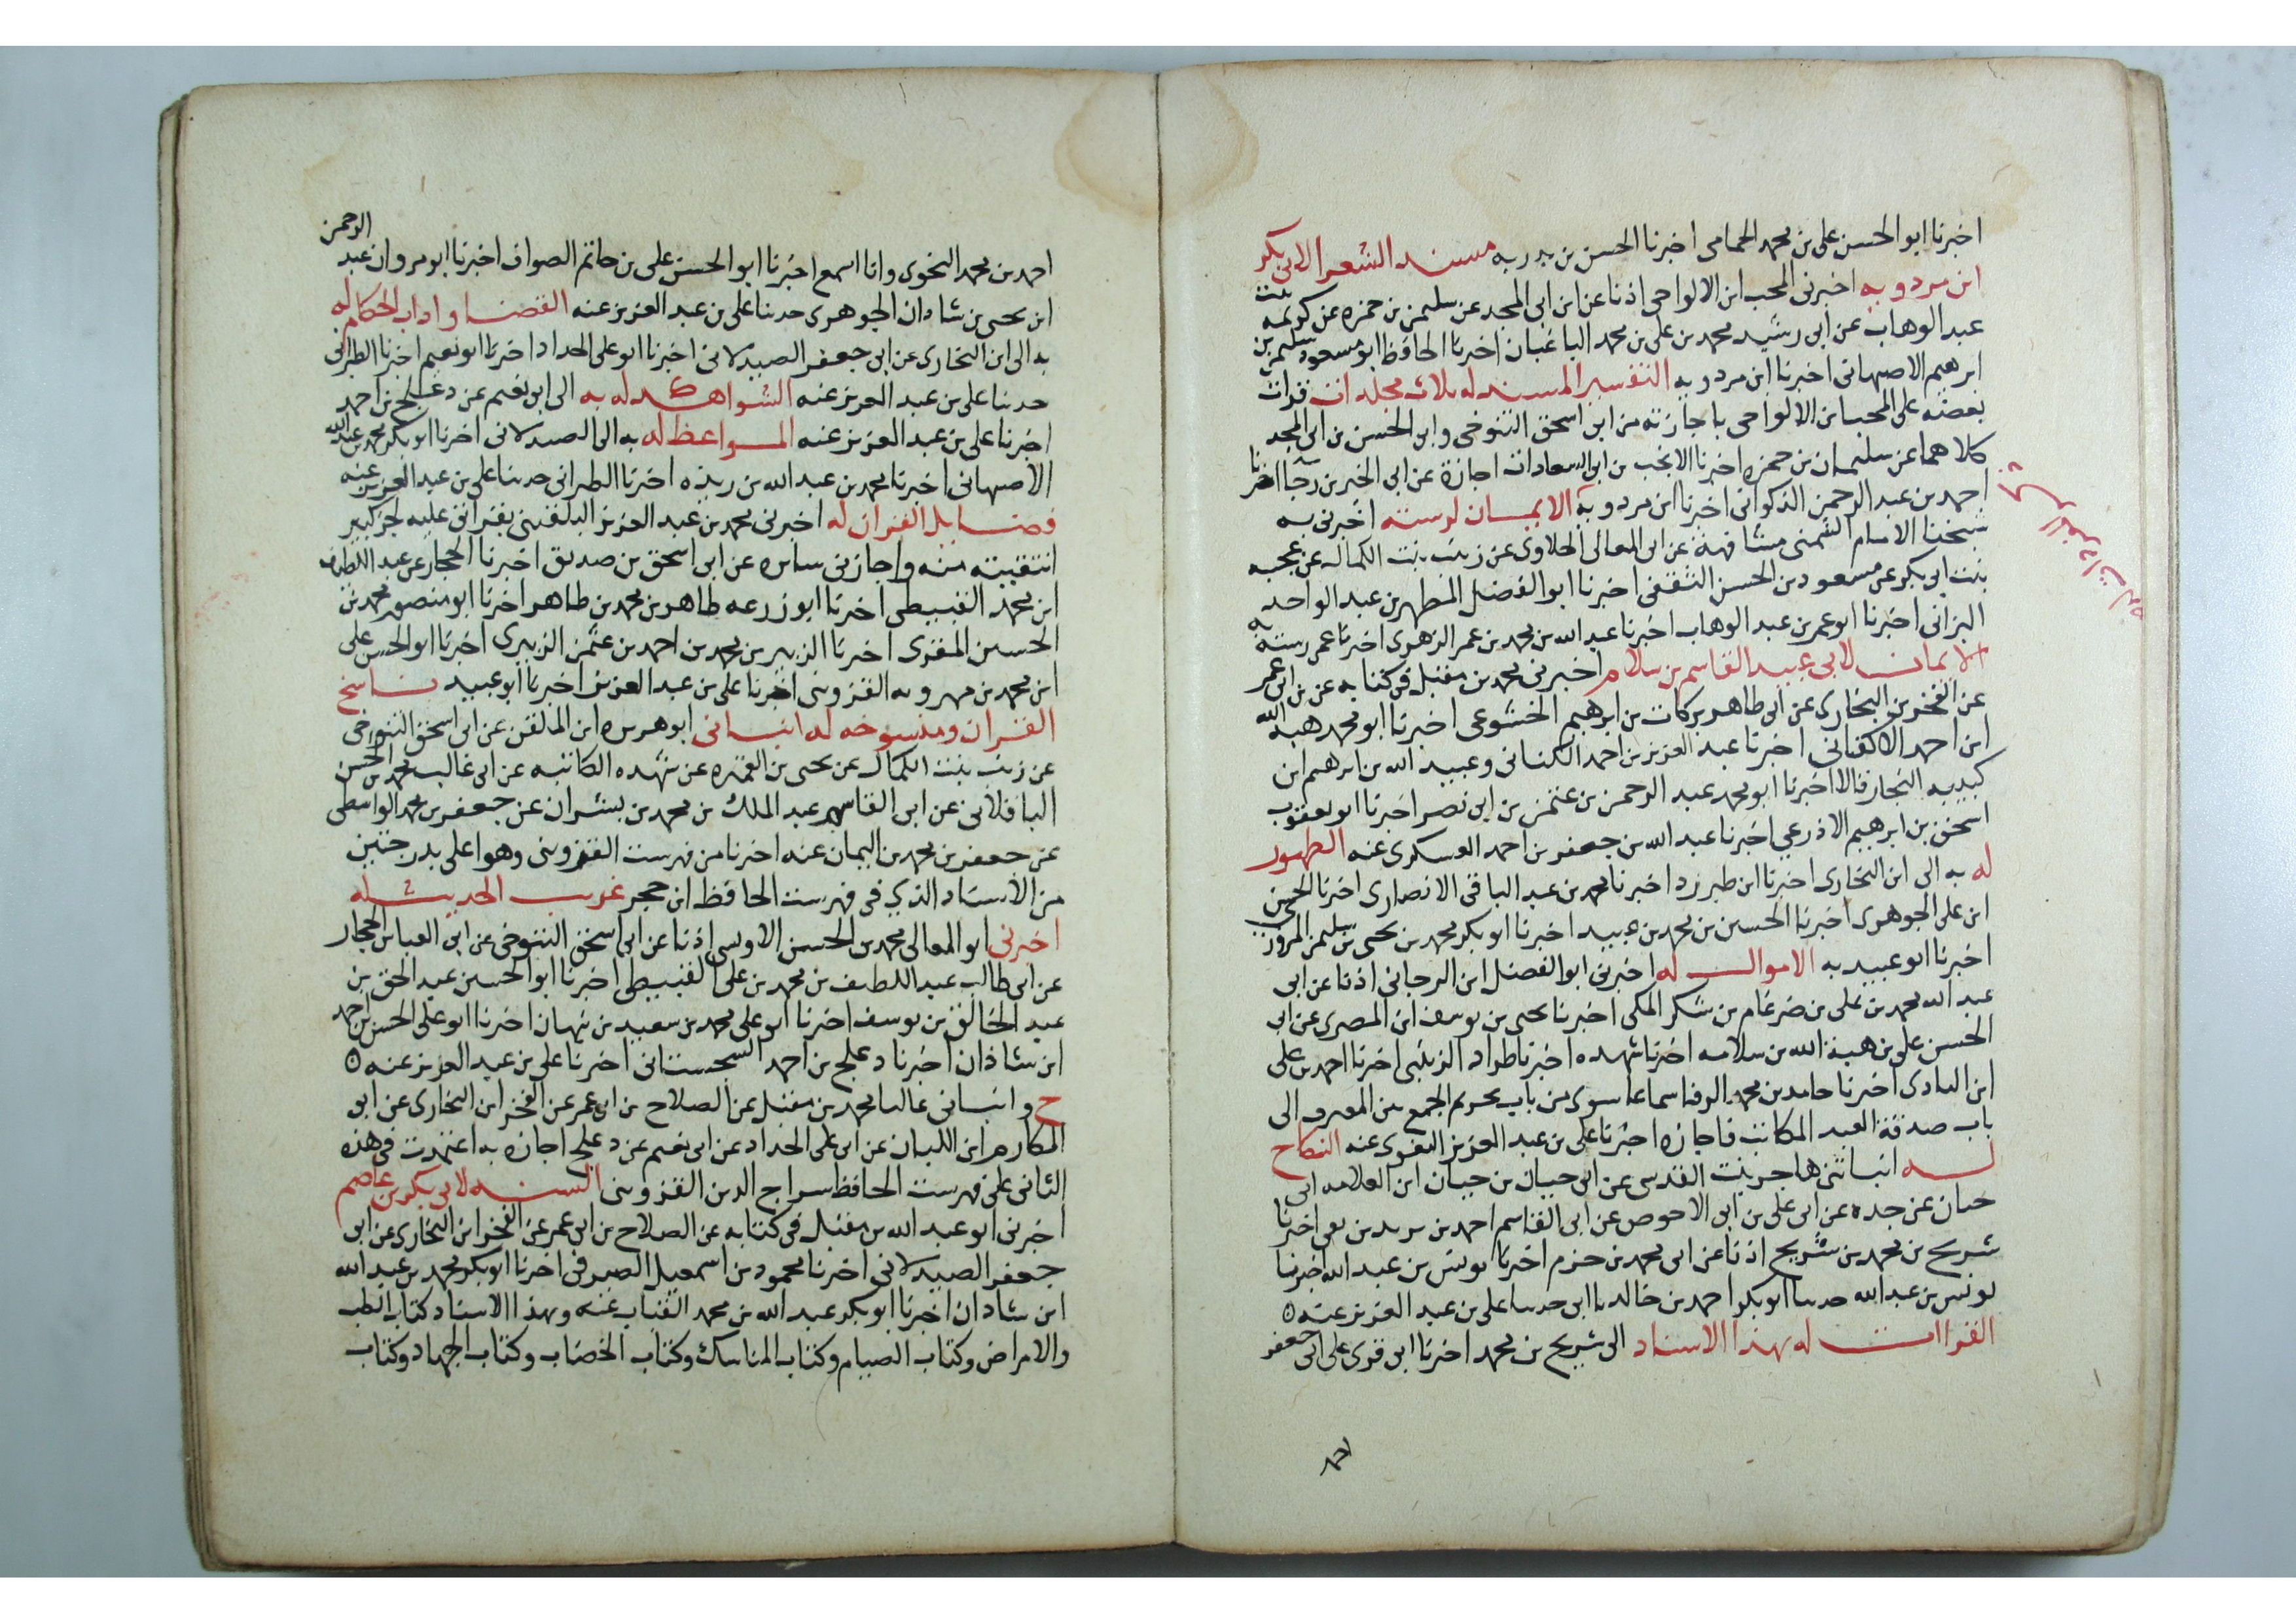 اخبرنا ابو الحسن على بن محمد الحمامى اخبرنا الحسن بن به مسند الشعرا لابى بكر
ابن مردويه اخبرنى المحب ابن الالواحى اذنا عن ابن ابى المجد عن سليمن بن حمزه عن كريمه بنت
عبد الوهاب عن ابى رشيد محمد بن على بن محمد الباغبان اخبرنا الحافظ ابو مسعود سليمن بن
ابرهيم الاصبهانى اخبرنا ابن مردويه التفسير المسند له ثلاث مجلدات قرات
بعضه على المحب ابن الالواحى باجازته من ابن اسحق التنوخى وابى الحسن بن ابى المجد
كلاهما عن سليمان بن حمزه اخبرنا الانجب بن ابى السعادات اجازة عن ابى الخير بن رجا اخبرنا
احمد بن عبد الرحمن الذكوانى اخبرنا ابن مردويه الايمان لرسته اخبرنى به
شيخنا الامام الشمنى مشافهة عن ابى المعالى الحلاوى عن زينب بنت الكمال عن عجيبه
بنت ابى بكر عن مسعود بن الحسن الثقفى اخبرنا ابو الفضل المطهر بن عبد الواحد
البزانى اخبرنا ابو عمر بن عبد الوهاب اخبرنا عبد الله بن محمد بن عمر الزهرى اخبرنا عمى رسته به
الايمان لابى عبيد القاسم بن سلام اخبرنى محمد بن مقبل فى كتابه عن بن ابى عمر
عن الفخر بن البخارى عن ابى طاهر بركات بن ابرهيم الخشوعى اخبرنا ابو محمد هبه الله
ابن احمد الاكفانى اخبرنا عبد العزيز بن احمد الكتانى وعبيد الله بن ابرهيم ابن
كبيبه النجار قالا اخبرنا ابو محمد عبد الرحمن بن عثمن بن ابى نصر اخبرنا ابو يعقوب
اسحق بن ابرهيم الاذرعى اخبرنا عبد الله بن جعفر بن احمد العسكرى عنه الطهور
له به الى ابن البخارى اخبرنا ابن طبرزد اخبرنا محمد بن عبد الباقى الانصارى اخبرنا الحسن
ابن على الجوهرى اخبرنا الحسين بن محمد بن عبيد اخبرنا ابو بكر محمد بن يحيى بن سليمن المروزى
اخبرنا ابو عبيد به الاموال له اخبرنى ابو الفضل ابن المرجانى اذنا عن ابى
عبد الله محمد بن على بن ضرغام بن شكر المكى اخبرنا يحيى بن يوسف ابن المصرى عن ابى
الحسن على بن هبة الله بن سلامه اخبرتنا شهده اخبرنا طراد الزينبى اخبرنا احمد بن على
ابن البادى اخبرنا حامد بن محمد الرفا سماعا سوى من باب تحريم الجمع بين المفرق الى
باب صدقة العبد المكاتب فاجازه اخبرنا على بن عبد العزيز البغوى عنه النكاح
له انباتنى هاجر بنت القدسى عن ابى حيان بن حيان ابن العلامه ابى
حيان عن جده عن ابى على بن ابى الاحوص عن ابى القاسم احمد بن يزيد بن بقى اخبرنا
شريح بن محمد بن شريح اذنا عن ابى محمد بن حزم اخبرنا يونس بن عبد الله اخبرنا
يونس بن عبد الله حدثنا ابو بكر احمد بن خالد ابى حدثنا على بن عبد العزيز عنه
القراات له بهذا الاسناد الى شريح بن محمد اخبرنا ابى قرى على ابى جعفر
احمد
احمد بن محمد النحوى وانا اسمع اخبرنا ابو الحسن على بن حاتم الصواف اخبرنا ابو مروان عبد الرحمن
ابن يحيى بن شادان الجوهرى حدثنا على بن عبد العزيز عنه القضا واداب الحكام له
به الى ابن البخارى عن ابى جعفر الصيدلانى اخبرنا ابو على الحداد اخبرنا ابو نعيم اخبرنا الطبرانى
حدثنا على بن عبد العزيز عنه الشواهد له به الى ابى نعيم عن دعلج بن احمد
اخبرنا على بن عبد العزيز عنه المواعظ له به الى الصيدلانى اخبرنا ابو بكر محمد بن عبد الله
الاصبهانى اخبرنا محمد بن عبد الله بن ريذه اخبرنا الطبرانى حدثنا على بن عبد العزيز عنه
فضايل القران له اخبرنى محمد بن عبد العزيز البلقينى بقراتى عليه لجز كبير
انتقيته منه واجازنى سايره عن ابى اسحق بن صديق اخبرنا الحجار عن عبد اللطيف
ابن محمد القبيطى اخبرنا ابو زرعه طاهر بن محمد بن طاهر اخبرنا ابو منصور محمد بن
الحسين المقرى اخبرنا الزبير بن محمد بن احمد بن عثمن الزبيرى اخبرنا ابو الحسن على
ابن محمد بن مهرويه القزوينى اخبرنا على بن عبد العزيز اخبرنا ابو عبيد ناسخ
القران ومنسوخه له انبانى ابو هريره ابن الملقن عن ابى اسحق التنوخى
عن زينب بنت الكمال عن يحيى بن القميره عن شهده الكاتبه عن ابى غالب محمد بن الحسن
الباقلانى عن ابى القاسم عبد الملك بن محمد بن بشران عن جعفر بن محمد الواسطى
عن جعفر بن محمد بن اليمان عنه اخبرنا من فهرست القزوينى وهو اعلى بدرجتين
من الاسناد الذى فى فهرست الحافظ ابن حجر غريب الحديث له
اخبرنى ابو المعالى محمد بن الحسن الاوسى اذنا عن ابى اسحق التنوخى عن ابى العباس الحجار
عن ابى طالب عبد اللطيف بن محمد بن على القبيطى اخبرنا ابو الحسين عبد الحق بن
عبد الخالق بن يوسف اخبرنا ابو على محمد بن سعيد بن نبهان اخبرنا ابو على الحسن بن احمد
ابن شاذان اخبرنا دعلج بن احمد السجستانى اخبرنا على بن عبد العزيز عنه
ح وانبانى عاليا محمد بن مقبل عن الصلاح بن ابى عمر عن الفخر ابن البخارى عن ابى
المكارم ابن اللبان عن ابى على الحداد عن ابى نعيم عن دعلج اجازه به اعتمدت فى هذه
الثانى على فهرست الحافظ سراج الدين القزوينى السنه لابى بكر بن عاصم
اخبرنى ابو عبد الله بن مقبل فى كتابه عن الصلاح بن ابى عمر عن الفخر ابن البخارى عن ابى
جعفر الصيدلانى اخبرنا محمود بن اسمعيل الصيرفى اخبرنا ابو بكر محمد بن عبد الله
ابن شاذان اخبرنا ابو بكر عبد الله بن محمد القباب عنه وبهذا الاسناد كتاب الطب
والامراض وكتاب الصيام وكتاب المناسك وكتاب الخضاب وكتاب الجهاد وكتاب